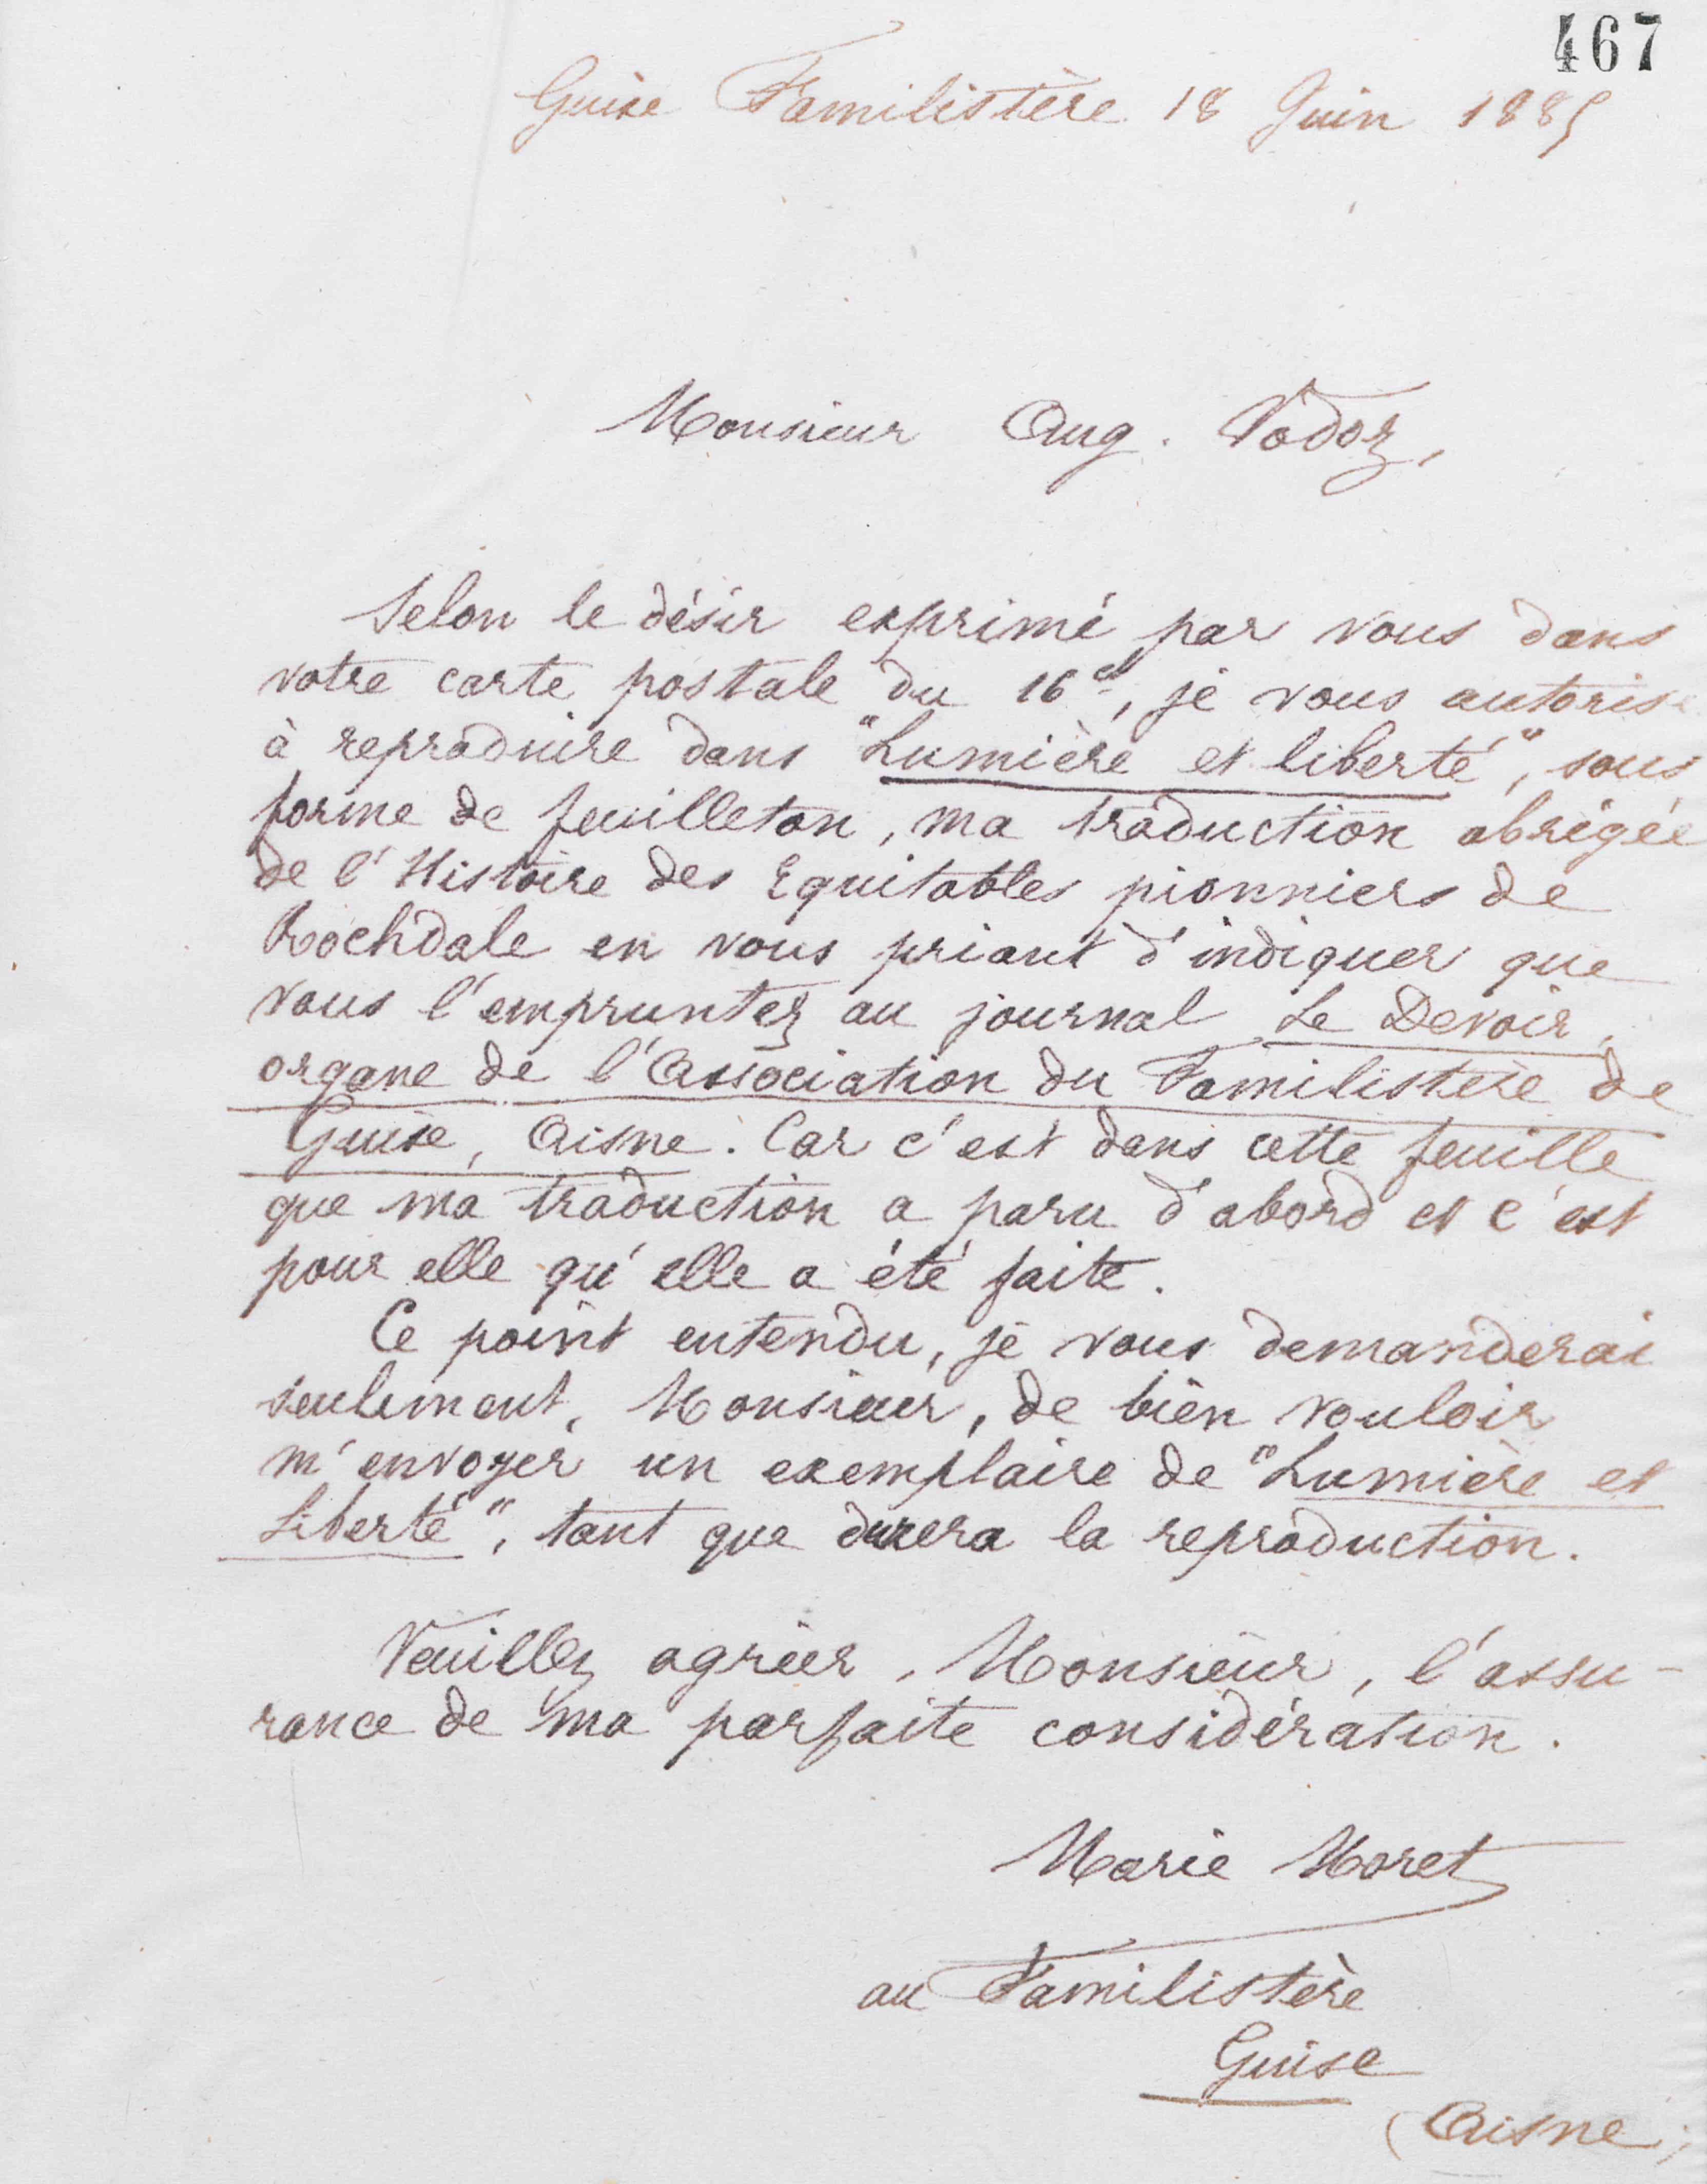 467
Guise Familistère 18 Juin 1885
Monsieur Aug. Vodoz,
Selon le désir exprimé par vous dans
votre carte postale du 16 ct, je vous autorise
à reproduire dans "Lumière et liberté", sous
forme de feuilleton, ma traduction abrégée
de l'Histoire des Equitables pionniers de
Rochdale en vous priant d'indiquer que
vous l'empruntez au journal Le Devoir,
organe de l'Association du Familistère de
Guise, Aisne. Car c'est dans cette feuille
que ma traduction a paru d'abord et c'est
pour elle qu'elle a été faite.
Ce point entendu, je vous demanderai
seulement, Monsieur, de bien vouloir
m'envoyer un exemplaire de "Lumière et
Liberté", tant que durera la reproduction.
Veuillez agréer, Monsieur, l'assu-
rance de ma parfaite considération.
Marie Moret
au Familistère
Guise
(Aisne)